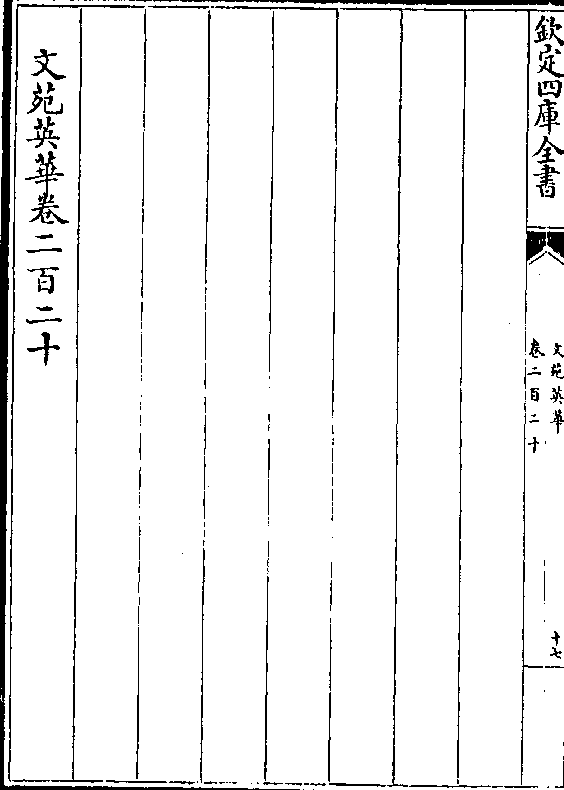 欽定四庫全書
文苑英華
卷二百二十
十七
文苑英華卷二百二十